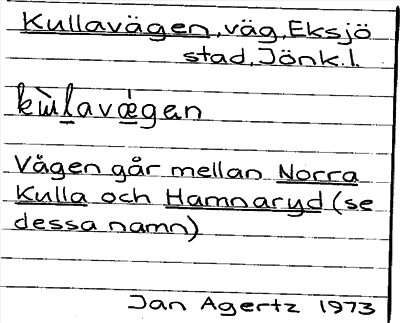 Kullavägen, väg, Eksjö
stad, Jönk. l.
kùl̲avǽ̲gan
Vägen går mellan Norra
Kulla och Hamnaryd (se
dessa namn)
Jan Agertz 1973